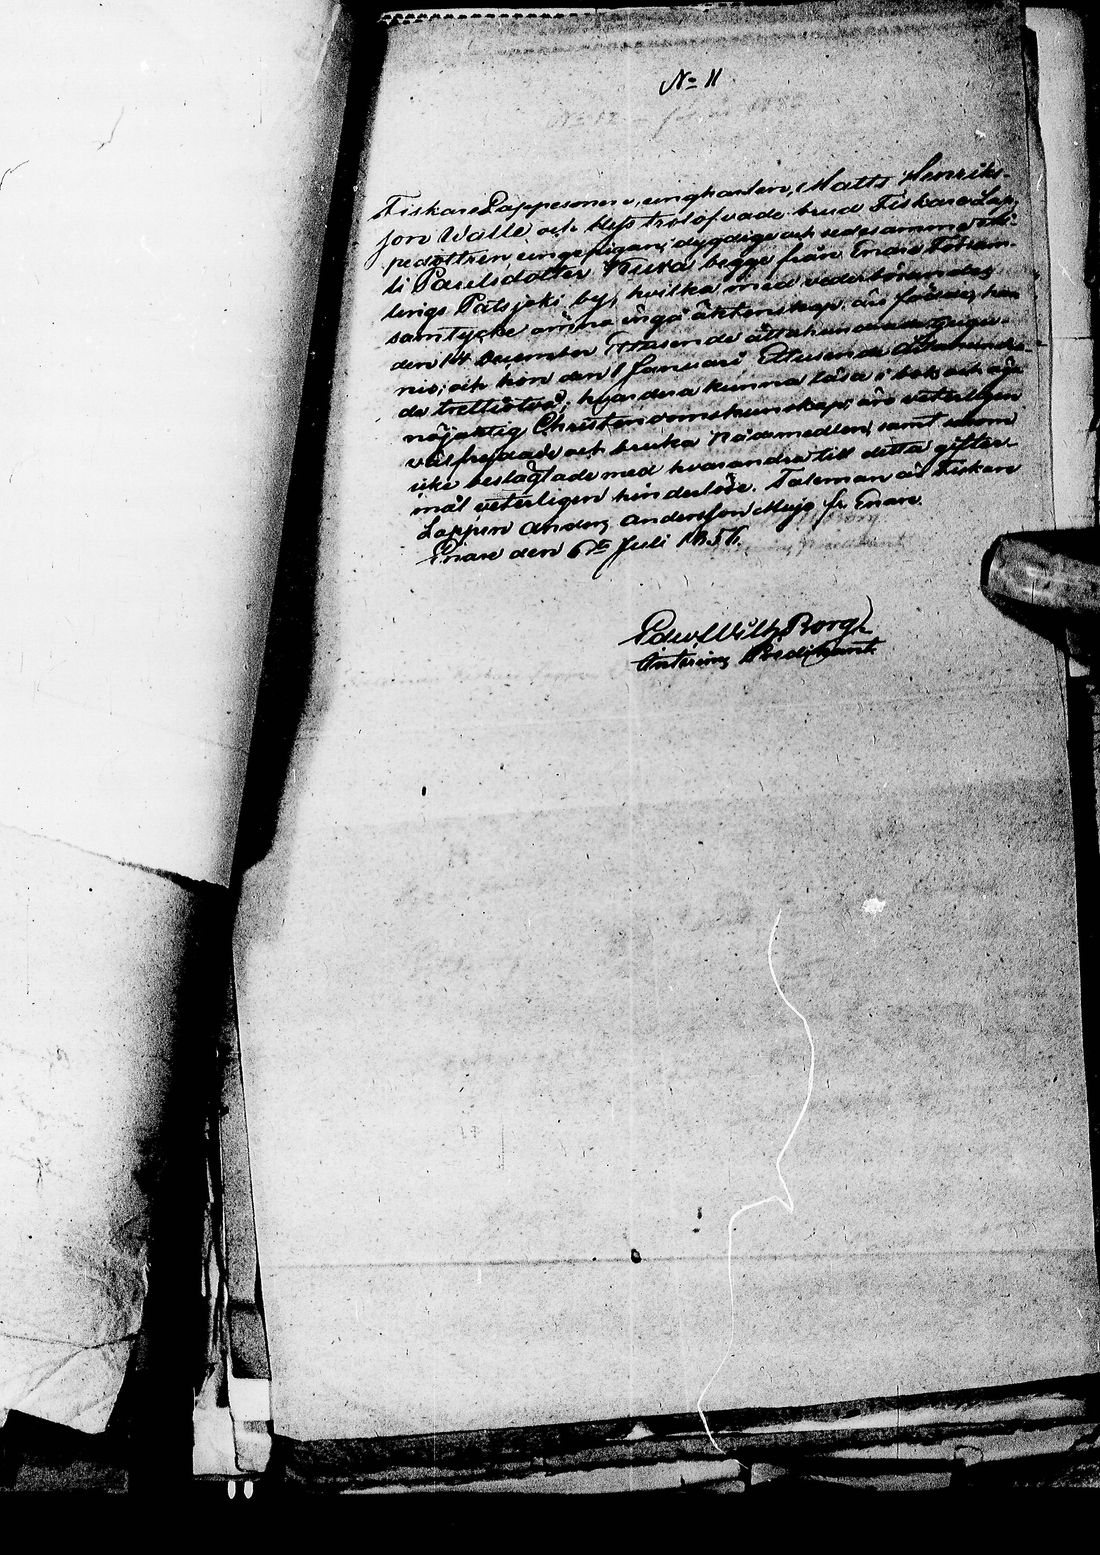 No 11
Fiskare Lappesonen, ungkarlen, Matts Henriks-
son Walle och dess trolofvade brud Fiskare Lap-
pedottren unga pigan, dygdige och sedesamme
li Paulsdotter Kuva begge från Enare
lings Patsjoki by, hvilka med vederbörandes
samtycke ämna ingå äktenskap, äro födde, han
den 14 December Ettusende åttahundrade
nio, och hon den 1 Januari Ettusende åttahundra-
de trettiotvå; hvardera kunna läsa i bok och äga
nöjaktig Christendomskunskap, äro veterligen
välfrejdade och bruka nådemedlen, samt
icke beslägtade med hvarandra till detta gifter-
mål veterligen hinderlöse. Taleman är Fiskare
Lappen Anders Andersson Mujo fr Enare.
Enare den 6te Juli 1856.
Edv. Wilh. Borg
Interims Predikant